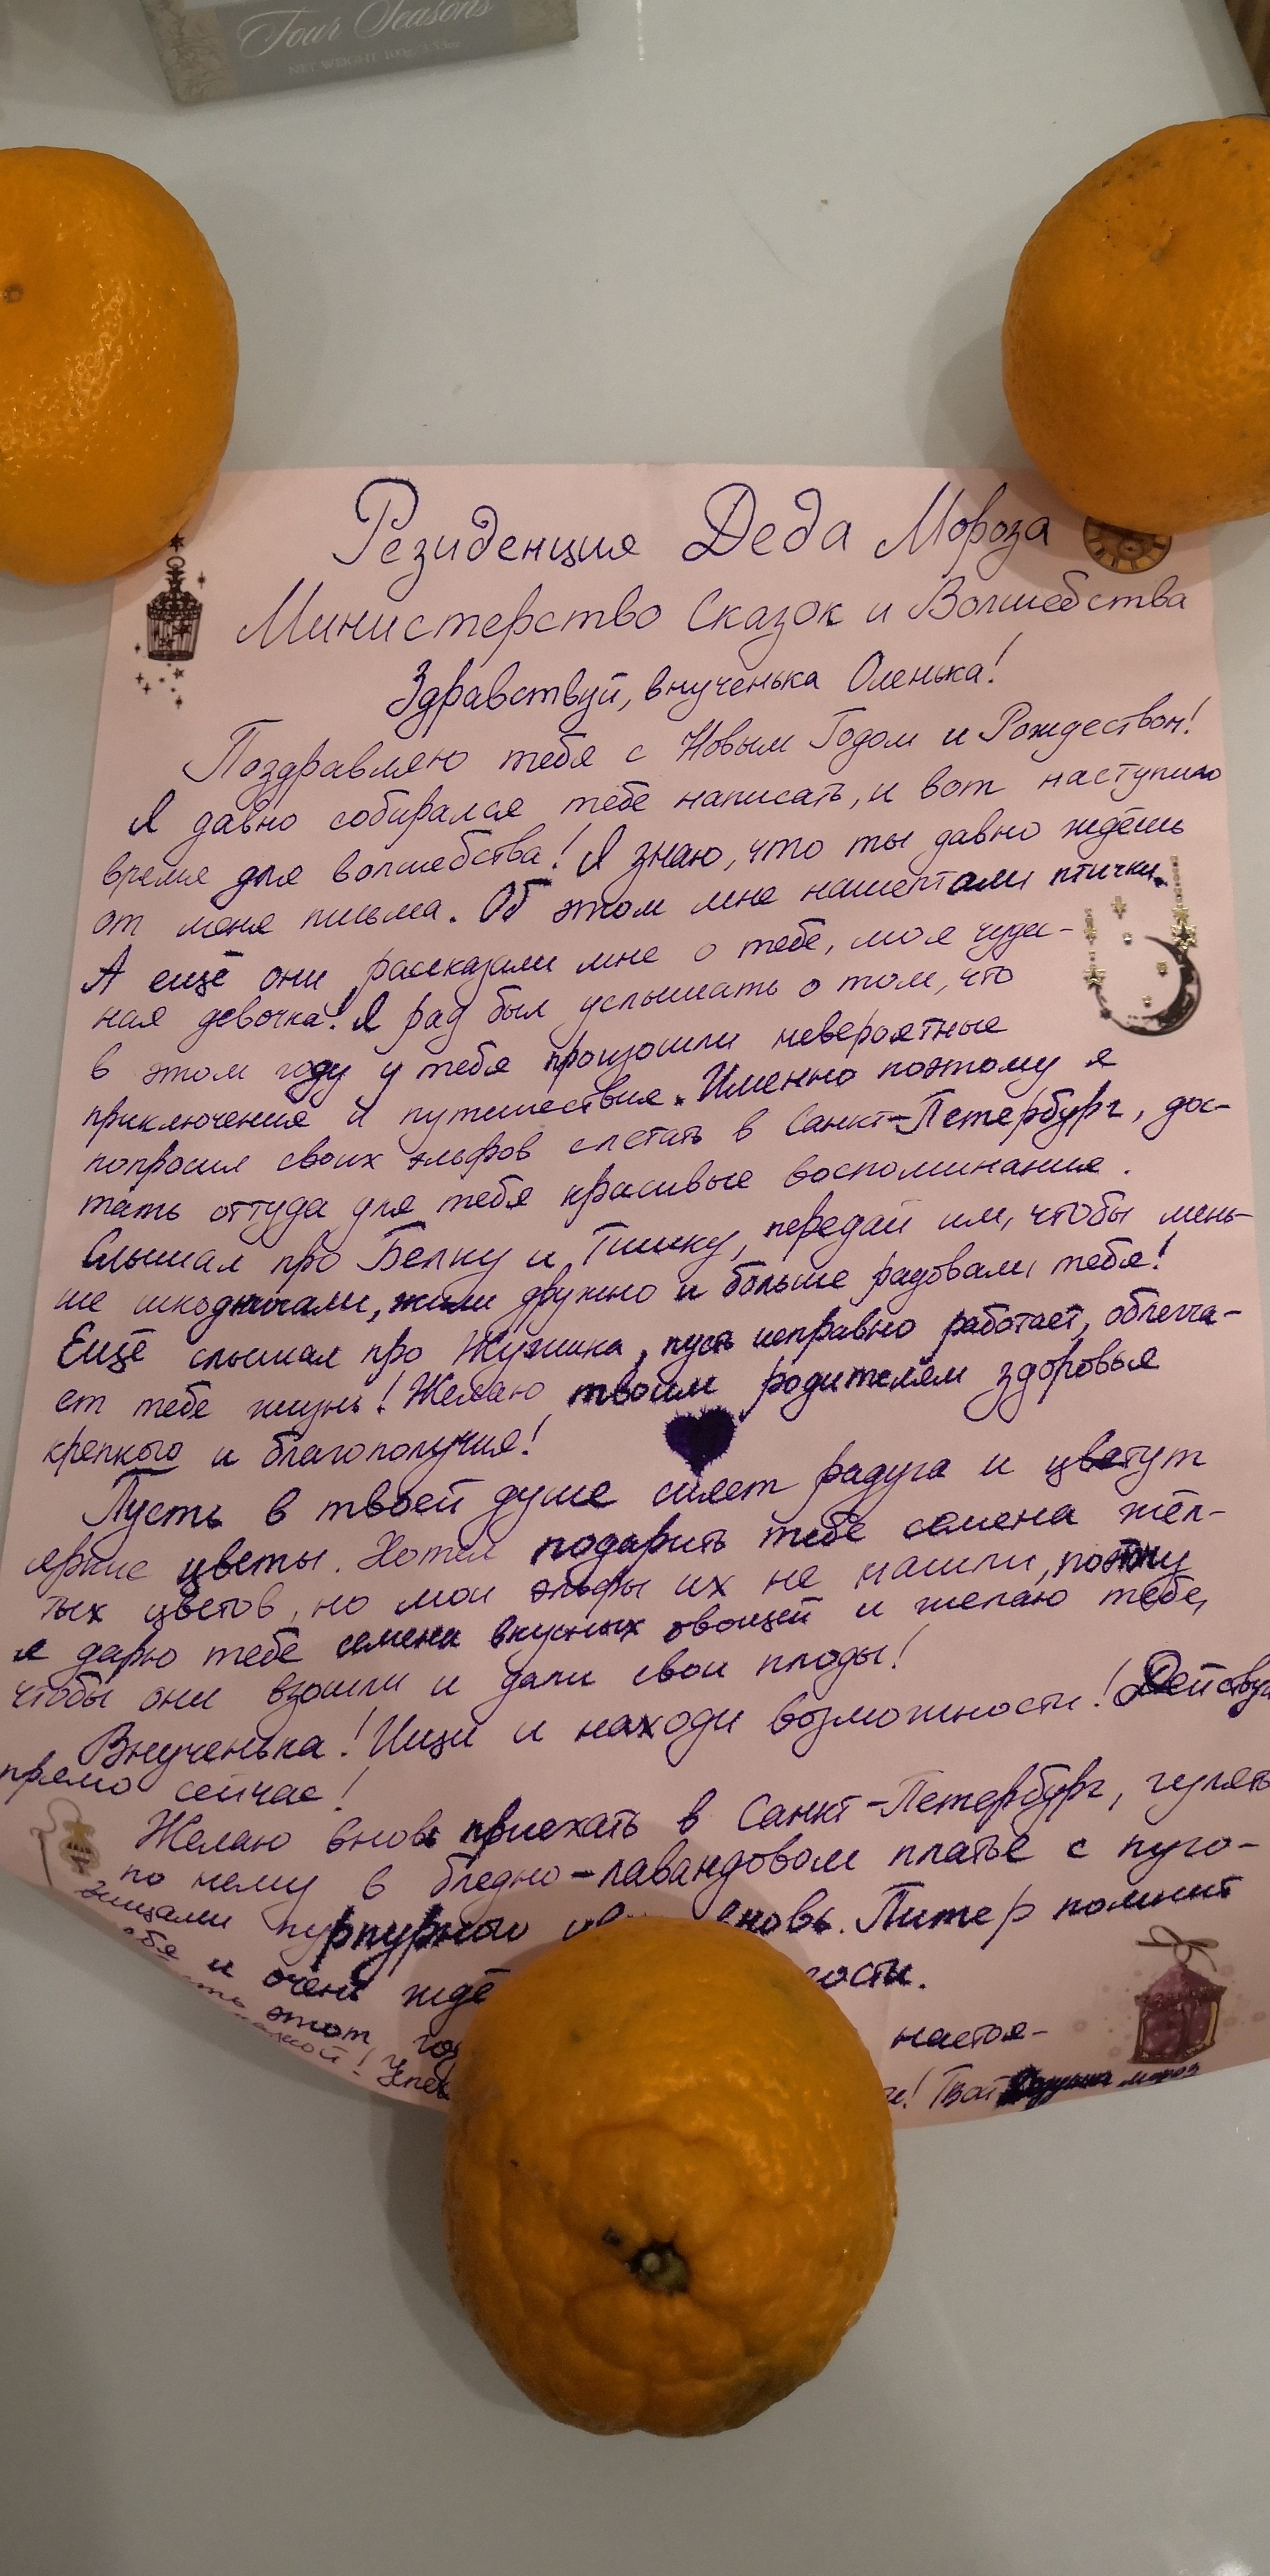 Four Seasons
NET WEIGHT 100g 3.53oz
Резиденция Деда Мороза
Министерство Сказок и Волшебства
Здравствуй, внученька Оленька!
Поздравляю тебя с Новым Годом и Рождеством!
Я давно собирался тебе написать, и вот наступило
время для волшебства! Я знаю, что ты давно ждёшь
от меня письма. Об этом мне нашептали птички.
А ещё они рассказали мне о тебе, моя чудес-
ная девочка! Я рад был услышать о том, что
в этом году у тебя произошли невероятные
приключения и путешествия. Именно поэтому я
попросил своих эльфов слетать в Санкт-Петербург, дос-
тать оттуда для тебя красивые воспоминания.
Слышал про Белку и Тишку, передай им, чтобы мень-
ше шкодничали, жили дружно и больше радовали тебя!
Ещё слышал про Жужика, пусть исправно работает, облегча-
ет тебе жизнь! Желаю твоим родителям здоровья
крепкого и благополучия!
Пусть в твоей душе сияет радуга и цветут
яркие цветы. Хотел подарить тебе семена жёл-
тых цветов, но мои эльфы их не нашли, поэтму
я дарю тебе семена вкусных овощей и желаю тебе,
чтобы они взошли и дали свои плоды!
Внученька! Ищи и находи возможности! Действуй
прямо сейчас!
Желаю вновь приехать в Санкт-Петербург, гулять
по нему в бледно-лавандовом платье с пуго-
вицами пурпурного вновь. Питер помнит
тебя и очень ждё гости.
этот го настоя-
Твой Дедушка мороз